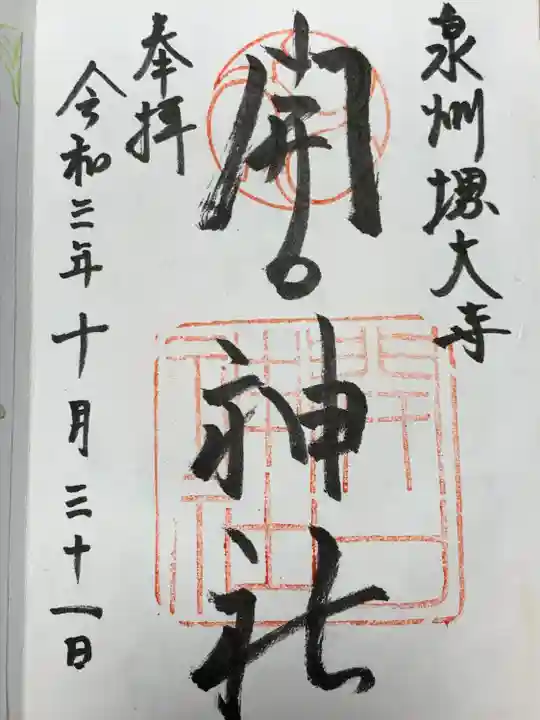 泉州堺大寺
開口神社
奉拝
令和三年十月三十一日